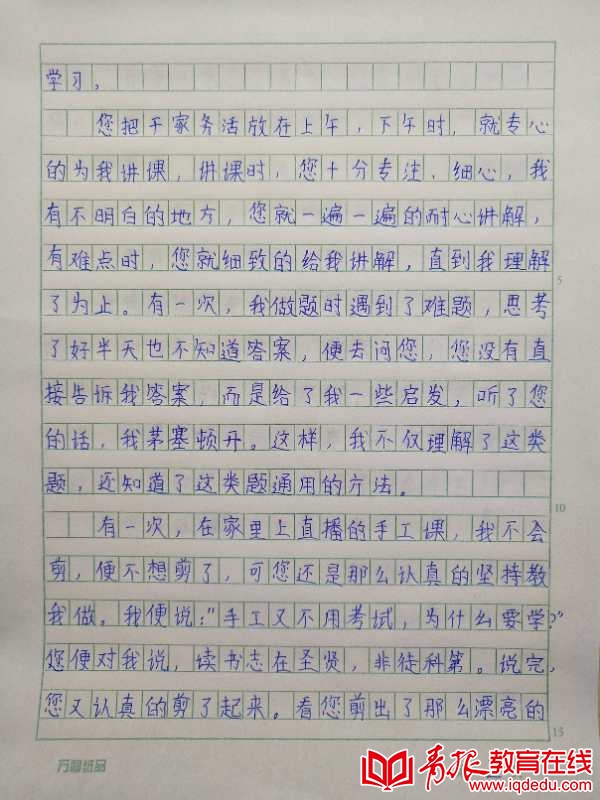 学习。
您把干家务活放在上午，下午时，就专心
的为我讲课，讲课时，您十分专注、细心，我
有不明白的地方，您就一遍一遍的耐心讲解，
有难点时，您就细致的给我讲解，直到我理解
5
了为止。有一次，我做题时遇到了难题，思考
了好半天也不知道答案，便去问您，您没有直
接告诉我答案，而是给了我一些启发，听了您
的话，我茅塞顿开。这样，我不仅理解了这类
题，还知道了这类题通用的方法。
10
有一次，在家里上直播的手工课，我不会
剪，便不想剪了，可您还是那么认真的坚持教
我做。我便说：“手工又不用考试，为什么要学？”
您便对我说，读书志在圣贤，非徒科第。说完，
您又认真的剪了起来。看您剪出了那么漂亮的
15
万磊纸品
青报教育在线
www.iqdedu.com